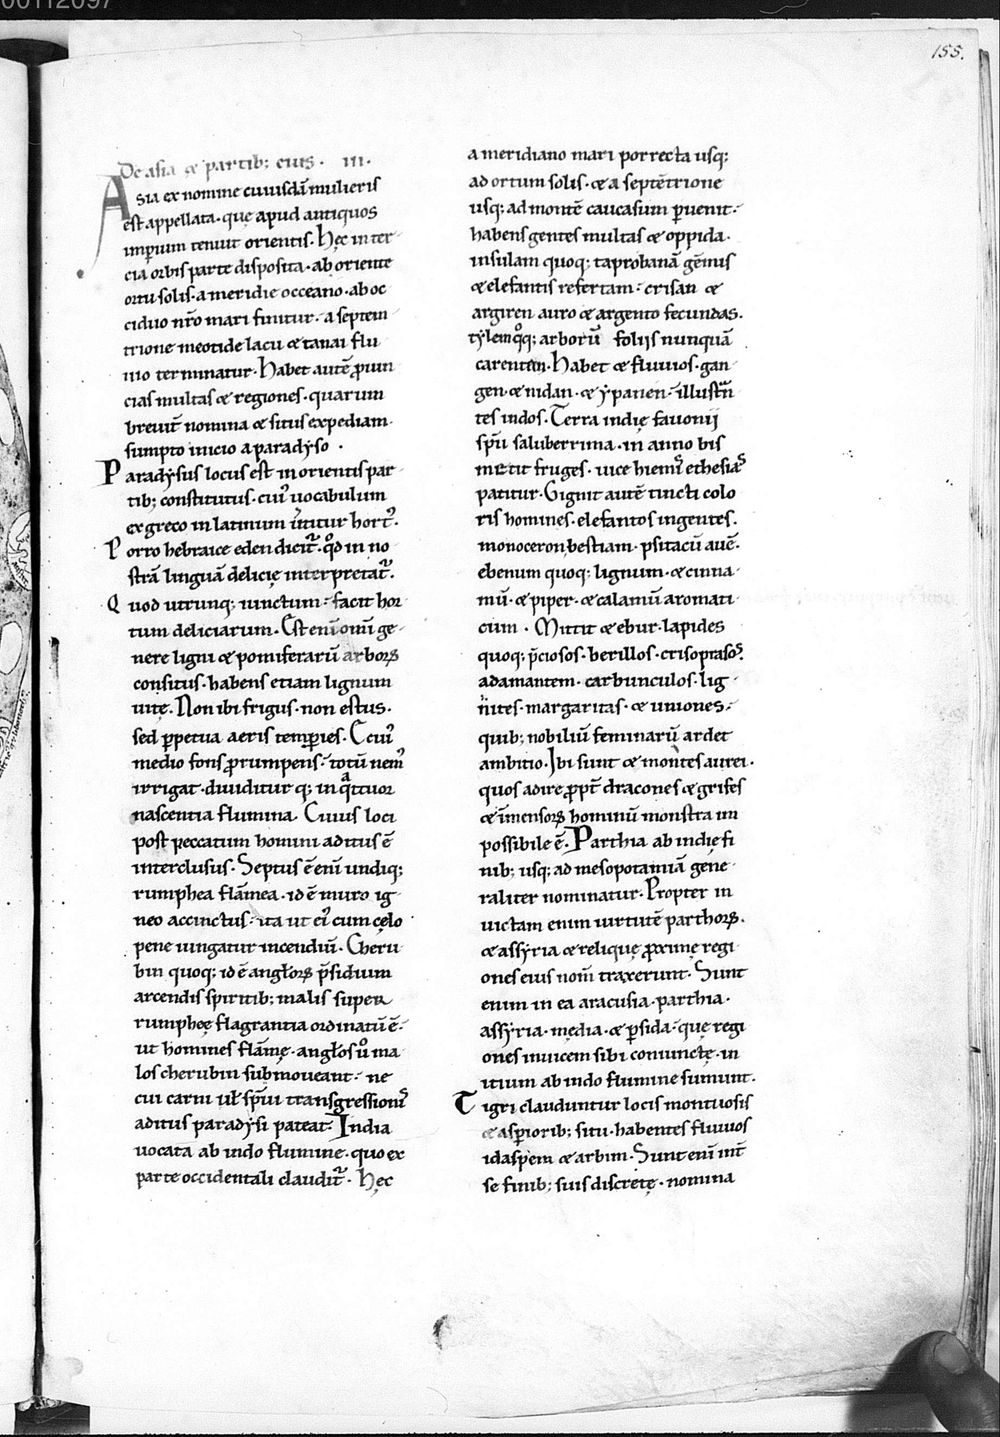 00112097
155.
De asia & partib; eius . iii.
Asia ex nomine cuiusdā mulieris
est appellata . quę apud antiquos
imperium tenuit orientis . Hęc in ter
cia orbis parte disposita . ab oriente
ortu solis . a meridie occeano . ab oc
ciduo nr̄o mari finitur . a septem
trione meotide lacu & tanai flu
uio terminatur . Habet autē ꝓuin
cias multas & regiones . quarum
breuit̄ nomina & situs expediam
sumpto inicio a paradyso .
Paradysus locus est in orientis par
tib; constitutus . cuiꝰ uocabulum
ex greco in latinum ūtitur hortꝰ .
Porro hebraice eden dicit̄ . qd̄ in no
strā linguā delicię interpretat̄ .
Quod utrunq; iunctum : facit hor
tum deliciarum . Est eni omī ge
nere ligni & pomiferarū arborꝝ
consitus . habens etiam lignum
uitę . Non ibi frigus . non estus .
sed ꝑpetua aeris temꝑies . E cuiꝰ
medio fons ꝓrumpens : totū nemꝰ
irrigat . diuiditur q; in qͣttuor
nascentia flumina . Cuius loci
post peccatum homini aditus ē
interclusus . Septus ē eni undiq;
rumphea flāmea . id ē muro ig
neo accinctus : ita ut eiꝰ cum cęlo
pene iungatur incendiū . Cheru
bin quoq; id ē angłorꝝ p̄sidium
arcendis spiritib; malis super
rumpheę flagrantia ordinatū ē :
ut homines flāmę . angłos ů ma
los cherubin submoueant : ne
cui carni uł sp̄ui transgressionis
aditus paradysi pateat . India
uocata ab indo flumine . quo ex
parte occidentali claudit̄ . Hęc
a meridiano mari porrecta usq;
ad ortum solis . & a septētrione
usq; ad montē caucasum ꝑuenit :
habens gentes multas & oppida .
insulam quoq; taprobanā gēmis
& elefantis refertam : crisan &
argiren auro & argento fecundas .
tylem qͦq; arborū foliis nunquā
carentem . Habet & fluuios . gan
gen . & nidan . & ypanen : illustrā
tes indos . Terra indię fauonij
sp̄u saluberrima . in anno bis
metit fruges . uice hiemis ethesias
patitur . Gignit autē tincti colo
ris homines . elefantos ingentes .
monoceron bestiam . psitacū auē .
ebenum quoq; lignum . & cinna
mū . & piper . & calamū aromati
cum . Mittit & ebur . lapides
quoq; p̄ciosos . berillos . crisoprasos .
adamantem . carbunculos . lig
nites . margaritas . & uniones :
quib; nobiliū feminarū ardet
ambitio . Ibi sunt & montes aurei .
quos adire ꝓpt̄ dracones & grifes
& īmensorꝝ hominū monstra im
possibile ē . Parthia ab indię fi
nib; usq; ad mesopotamiā gene
raliter nominatur . Propter in
uictam enim uirtutē parthorꝝ .
& assyria & relique ꝓximę regi
ones eius nom̄ traxerunt . Sunt
enim in ea aracusia . parthia .
assyria . media . & ꝑsida : quę regi
ones inuicem sibi coniunctę . in
itium ab indo flumine sumunt .
Tigri clauduntur locis montuosis
& asꝑiorib; situ . habentes fluuios
idaspem & arbim . Sunt eni int̄
se finib; suis discretę . nomina